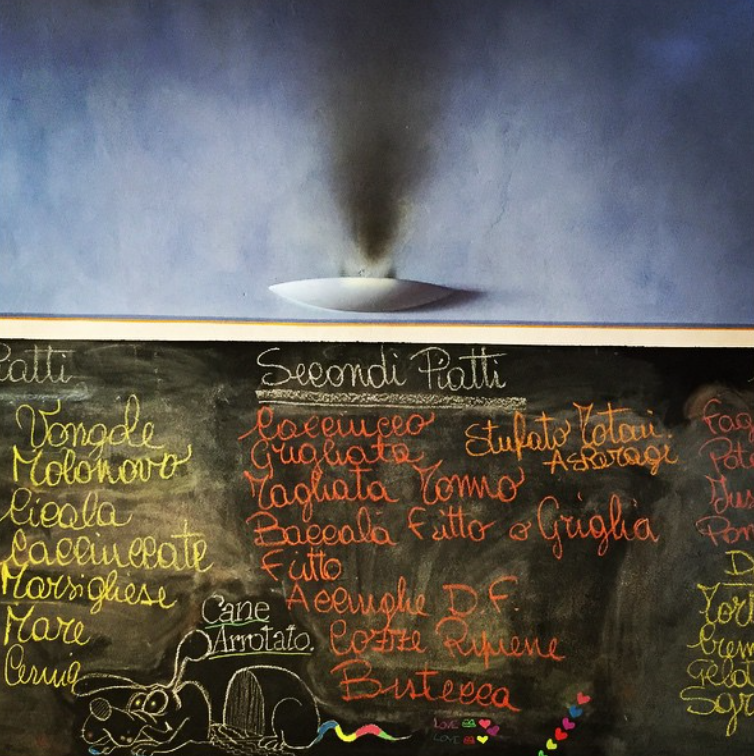 Piatti
Vongole
Molonovo
Cicala
Cacciuccate
Marsigliese
Mare
Cernia
Secondi Piatti
Cacciucco
Grigliata
Tagliata Tonno
Baccalà Fritto o Griglia
Fritto
Acciughe D.F.
Cozze Ripiene
Bistecca
Stufato Totani.
Asparagi
Cane
Arrotato.
LOVE
LOVE
Fag
Pata
Pom
D
Tort
Crem
Gela
Sgr